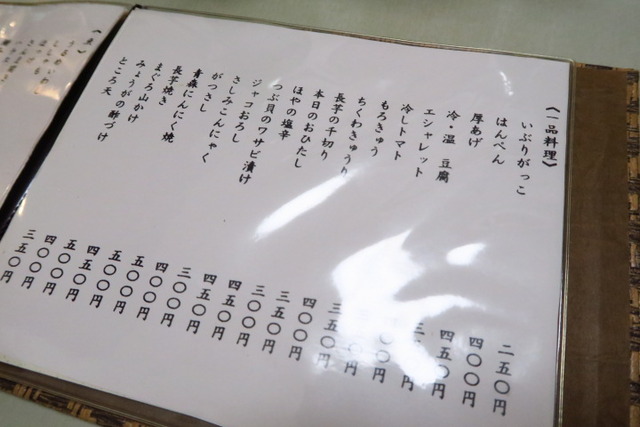 《一品料理》
いぶりがっこ 二五〇円
はんぺん 四〇〇円
厚あげ 四五〇円
冷・温 豆腐 円
エシャレット 〇円
冷しトマト 円
もろきゅう 三五〇円
ちくわきゅうり 四〇〇円
長芋の千切り 三五〇円
本日のおひたし 三〇〇円
ほやの塩辛 四五〇円
つぶ貝のワサビ漬け 四五〇円
ジャコおろし 三〇〇円
さしみこんにゃく 四〇〇円
がつさし 五〇〇円
青森にんにく焼 五〇〇円
長芋焼き 四五〇円
まぐろ山かけ 五〇〇円
みょうがの酢づけ 四〇〇円
ところ天 三五〇円